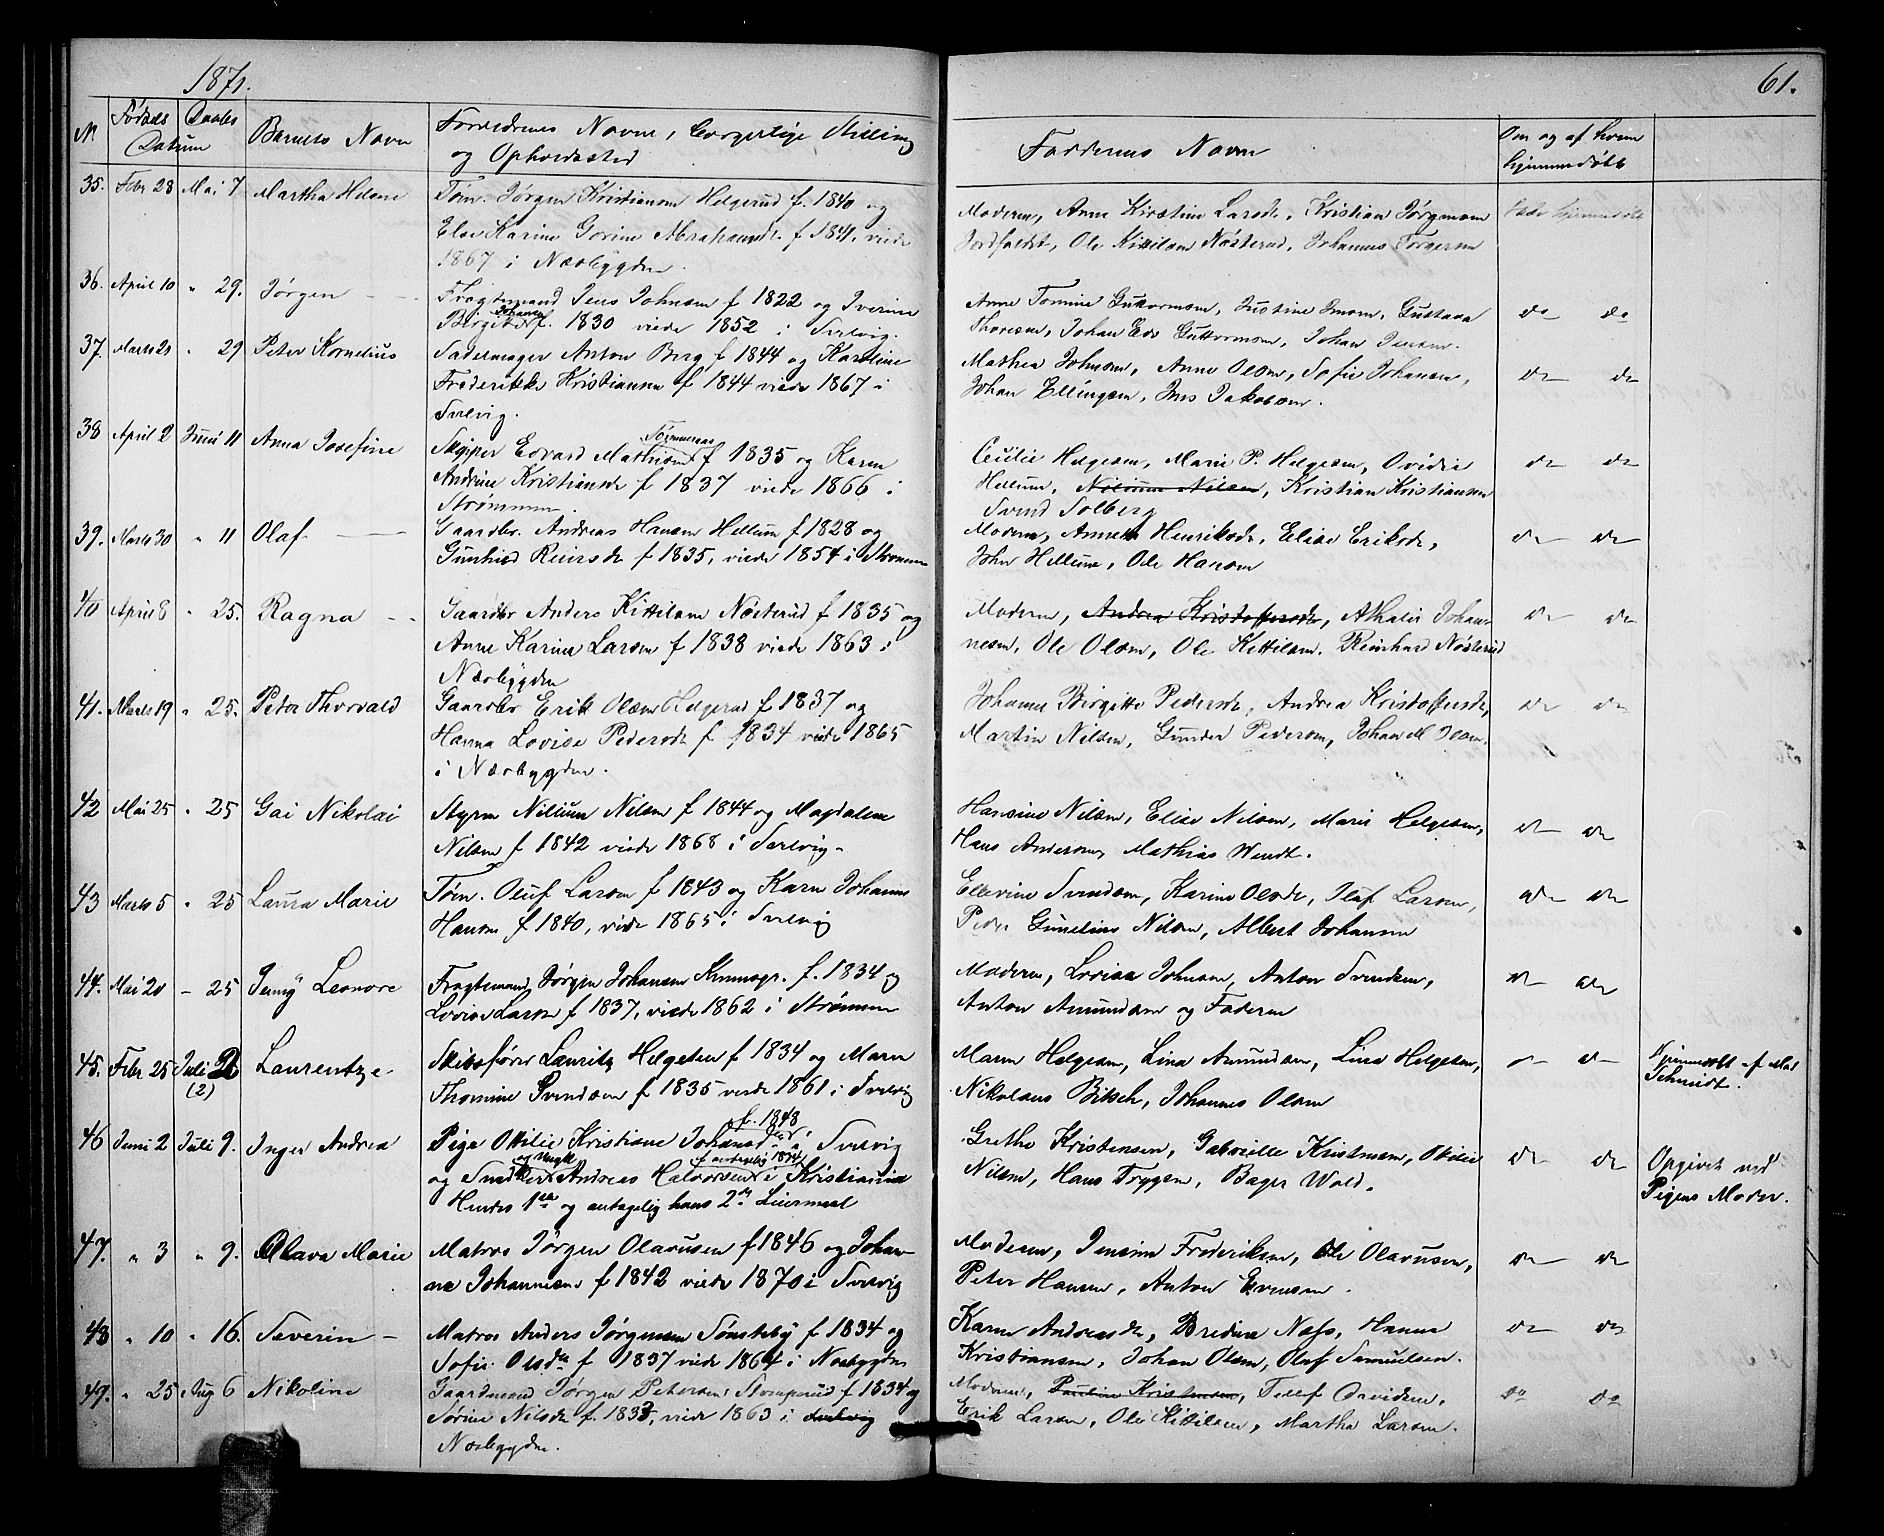 1871.
61.
No
Fødsels Daabs
Datum
Barnets Navn
Forældrenes Navne, borgerlige Stilling
og Opholdssted
Faddernes Navne
Om og af hvem
hjemmedøbt
35. Febr 28 Mai 7 Martha Helene
Tøm. Jørgen Kristiansen Helgerud f. 1840 og
Else Karine Gorine Abrahamsdt f 1841, viede
1867 i Næsbygden.
Moderen, Anne Kirstine Larsdt, Kristian Jørgensen
Jordfaldet, Ole Kittilsen Nøsterud, Johannes Torgersen
hjemmedøbt
36. April 10 " 29. Jørgen
Fragtemand Jens Johnsen f 1822 og Iverine
Birgitte Johansen f. 1830 viede 1852 i Svelvig.
Anne Tomine Guttormsen, Justine Imsen, Gustava
Thoresen, Johan Ed. Guttormsen, Johan Jensen.
do do
37. Marts 21 " 29 Peter Kornelius
Sadelmager Anton Berg f 1844 og Karoline
Frederikke Kristiansen f 1844 viede 1867 i
Svelvig.
Mathea Johnsen, Anne Olsen, Sofie Johansen,
Johan Ellingsen, Jens Jakobsen.
do do
38 April 2 Juni 11 Anna Josefine
Skipper Edvard Mathisen Tømmeraas f 1835 og Karen
Andrine Kristiansdt f 1837 viede 1866 i
Strømmen.
Cecilie Helgesen, Marie P. Helgesen, Ovidia
Hellum, Nilium Nilsen, Kristian Kristiansen
Svend Solberg
do do
39. Marts 30 " 11 Olaf
Gaardbr. Andreas Hansen Hellum f 1828 og
Gunhild Reiersdt f 1835, viede 1854 i Strømmen
Moderen, Anne M Henriksdt, Elise Eriksdt,
John Hellum, Ole Hansen
do do
40 April 8 " 25. Ragna
Gaardbr Anders Kittilsen Nøsterud f 1835 og
Anne Karine Larsen f 1838 viede 1863 i
Næsbygden
Moderen, Andrea Kristoffersdt, Athalie Johan-
nesen, Ole Olsen, Ole Kittilsen. Reinhard Nøsterud
do do
41. Marts 19 " 25. Peter Thorvald
Gaardbr Erik Olsen Helgerud f 1837 og
Hanna Lovise Pedersdt f 1834 viede 1865
i Næsbygden.
Johanne Birgitte Pedersdt, Andrea Kristoffersdt,
Martin Nilsen, Gunder Pedersen, Johan M Olsen.
do do
42 Mai 25 " 25 Gai Nikolai
Styrm Nilium Nilsen f 1844 og Magdalene
Nilsen f 1842 viede 1868 i Svelvig.
Hansine Nilsen, Elise Nilsen, Marie Helgesen,
Hans Andersen, Mathias Wendt.
do do
43 Marts 5 " 25 Laura Marie
Tøm. Oluf Larsen f 1843 og Karen Johanne
Hansen f 1840, viede 1865 i Svelvig
Ellevine Svendsen, Karine Olsdt, Olaf Larsen,
Peder Gunelius Nilsen, Albert Johansen
do do
44. Mai 20 – 25 Jenny Leonore
Fragtemand Jørgen Johansen f. 1834 og
Lovise Larsen f 1837, viede 1862 i Strømmen
Moderen, Lovisa Johnsen, Anton Svendsen,
Anton Amundsen og Faderen
do do
45. Febr 25 Juli 2 Laurentze
(2)
Skibsfører Lauritz Helgesen f 1834 og Maren
Thomine Svendsen f 1835 viede 1861 i Svelvig
Maren Helgesen, Lina Amundsen, Lina Helgesen,
Nikolaus Bitsch, Johannes Olsen
do do
Hjemmedøbt af Mad
Schmidt.
46 Juni 2 Juli 9. Inger Andrea
Pige Ottilie Kristiane Johansdt f. 1848 i Svelvig
og Snedker og Ungk Andreas Halvorsen f antagelig 1834 i Kristiania
Hendes 1ste og antagelig hans 2det Leiermaal
Grethe Kristensen, Gabrielle Kristensen, Otilie
Nilsen, Hans Trygsen, Bager Wold.
do do
Opgivet ved
Pigens Moder.
47. " 3 " 9. Olava Marie
Matros Jørgen Olavusen f 1846 og Johan-
ne Johannesen f 1842 viede 1870 i Svelvig
Moderen, Jensine Frederiksen, Ole Olavusen,
Peter Hansen, Anton Evensen.
do do
48 " 10 " 16. Severin
Matros Anders Jørgensen Sønsteby f 1834 og
Sofie Olsdt f 1837 viede 1864 i Nesbygden
Karen Andreasdt, Bredine Næss, Hanna
Kristiansen, Johan Olsen, Olaf Samuelsen.
do do
49. " 25 Aug 6 Nikoline
Gaardmand Jørgen Petersen Stomperud f 1834 og
Sørine Nilsdt f. 1833, viede 1863 i Svelvig
Nesbygden.
Moderen, Pauline Kristensen, Tellef Davidsen,
Erik Larsen, Ole Kittilsen, Martha Larsen.
do do